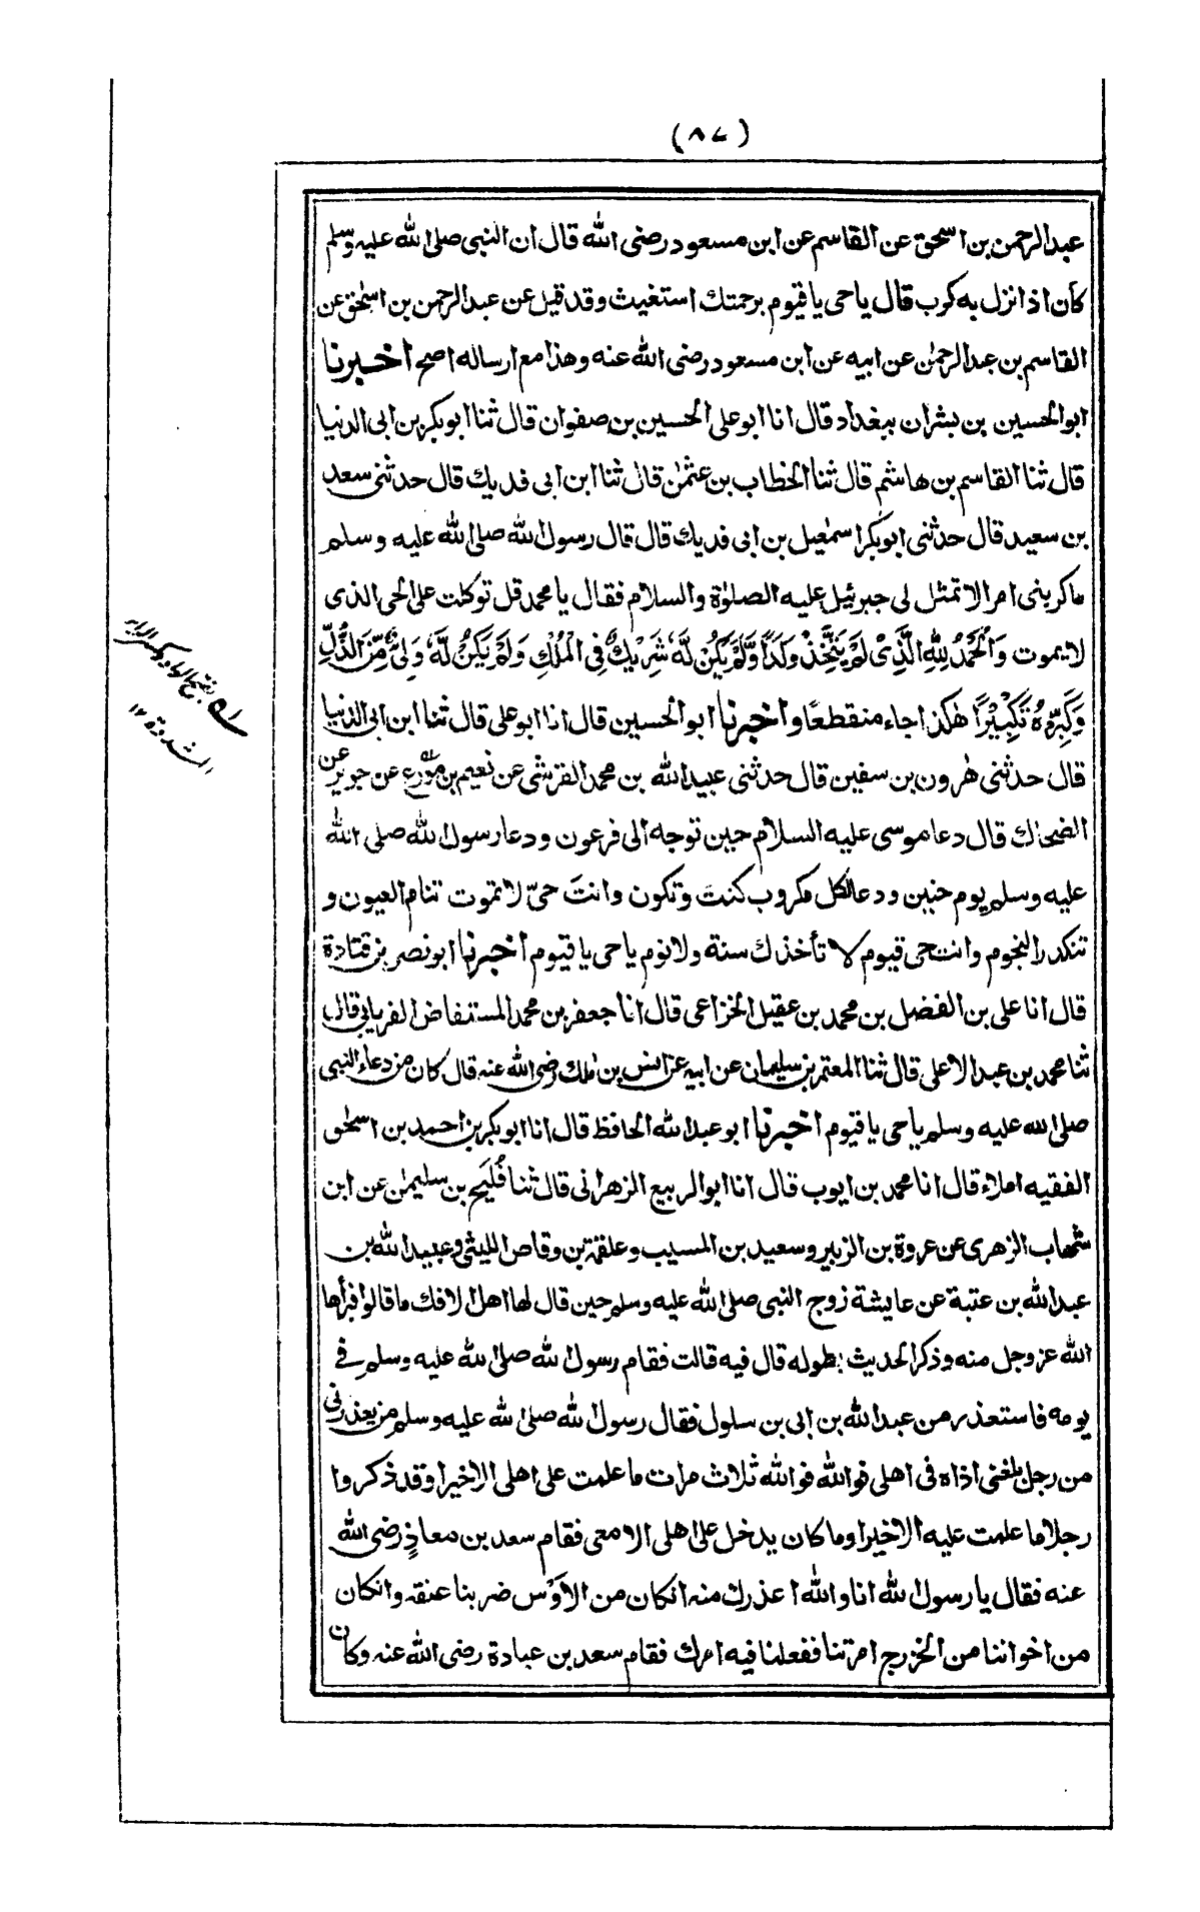 (٨٧)
عبدالرحمن بن اسحق عن القاسم عن ابن مسعود رضى الله قال ان النبى صلى الله عليه وسلم
كان اذا نزل به كرب قال يا حى يا قيوم برحمتك استغيث وقد قيل عن عبدالرحمن بن اسحق عن
القاسم بن عبدالرحمٰن عن ابيه عن ابن مسعود رضى الله عنه وهذا مع ارساله اصح اخبرنا
ابوالحسين بن بشران ببغداد قال انا ابوعلى الحسين بن صفوان قال ثنا ابوبكر بن ابى الدنيا
قال ثنا القاسم بن هاشم قال ثنا الخطاب بن عثمٰن قال ثنا ابن ابى فديك قال حدثنى سعد
بن سعيد قال حدثنى ابوبكر اسمٰعيل بن ابى فديك قال قال رسول الله صلى الله عليه وسلم
ما كربنى امر الا تمثل لى جبرئيل عليه الصلوٰة والسلام فقال يا محمد قل توكلت على الحى الذى
لا يموت وَالْحَمْدُ لِلّٰهِ الَّذِىْ لَمْ يَتَّخِذْ وَلَدًا وَّلَمْ يَكُنْ لَّهٗ شَرِيْكٌ فِى الْمُلْكِ وَلَمْ يَكُنْ لَّهٗ وَلِىٌّ مِّنَ الذُّلِّ
وَكَبِّرْهُ تَكْبِيْرًا هٰكذا جاء منقطعًا واخبرنا ابوالحسين قال انا ابوعلى قال ثنا ابن ابى الدنيا
قال حدثنى هٰرون بن سفين قال حدثنى عبيدالله بن محمد القرشى عن نعيم بن مورع عن جويبر عن
الضحاك قال دعا موسى عليه السلام حين توجه الى فرعون ودعا رسول الله صلى الله
عليه وسلم يوم حنين ودعا لكل مكروب كنتَ وتكون وانتَ حىّ لا تموت تنام العيون و
تنكدر النجوم وانت حى قيوم لا تأخذك سنة ولا نوم يا حى يا قيوم اخبرنا ابونصر بن قتادة
قال انا على بن الفضل بن محمد بن عقيل الخزاعى قال انا جعفر بن محمد المستفاض الفريابى قال
ثنا محمد بن عبد الاعلى قال ثنا المعتمر بن سليمان عن ابيه عن انس بن مٰلك رضى الله عنه قال كان من دعاء النبى
صلى الله عليه وسلم يا حى يا قيوم اخبرنا ابو عبدالله الحافظ قال انا ابوبكر بن احمد بن اسحٰق
الفقيه املاء قال انا محمد بن ايوب قال انا ابوالربيع الزهرانى قال ثنا فُلَيح بن سليمٰن عن ابن
شهاب الزهرى عن عروة بن الزبير وسعيد بن المسيب وعلقمة بن وقاص الليثى وعبيدالله بن
عبدالله بن عتبة عن عايشة زوج النبى صلى الله عليه وسلم حين قال لها اهل الافك ما قالوا فبرأها
الله عز وجل منه وذكر الحديث بطوله قال فيه قالت فقام رسول الله صلى الله عليه وسلم فى
يومه فاستعذر من عبدالله بن ابى بن سلول فقال رسول الله صلى الله عليه وسلم من يعذرنى
من رجل بلغنى اذاه فى اهلى فوالله فوالله ثلاث مرات ما علمت على اهلى الا خيرا وقد ذكروا
رجلا ما علمت عليه الا خيرا وما كان يدخل على اهلى الا معى فقام سعد بن معاذ رضى الله
عنه فقال يا رسول الله انا والله اعذرك منه انكان من الاَوْس ضربنا عنقه وانكان
من اخواننا من الخزرج امرتنا ففعلنا فيه امرك فقام سعد بن عبادة رضى الله عنه وكان
بفتح الواو وكسر الراء
المشددة ١٢